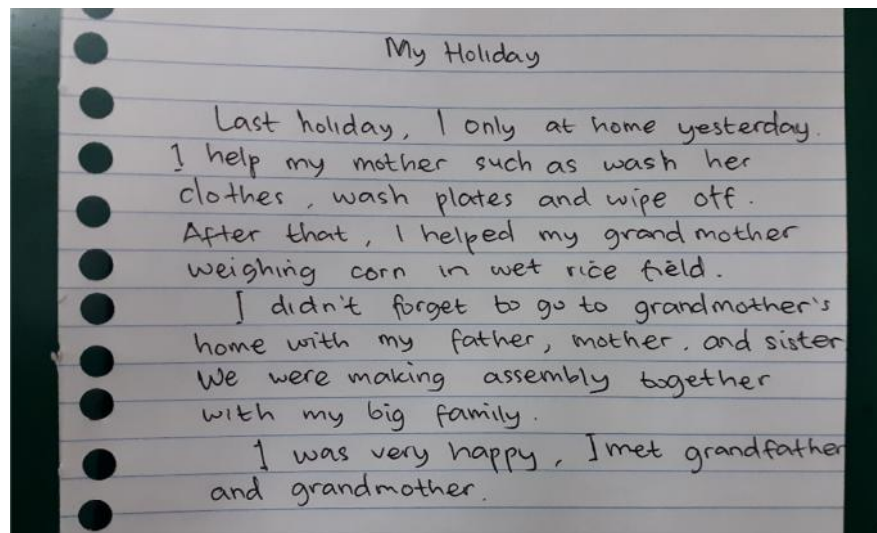 My Holiday
Last holiday, I only at home yesterday.
I help my mother such as wash her
clothes, wash plates and wipe off.
After that, I helped my grandmother
weighing corn in wet rice field.
I didn't forget to go to grandmother's
home with my father, mother, and sister
We were making assembly together
with my big family.
I was very happy, I met grandfather
and grandmother.